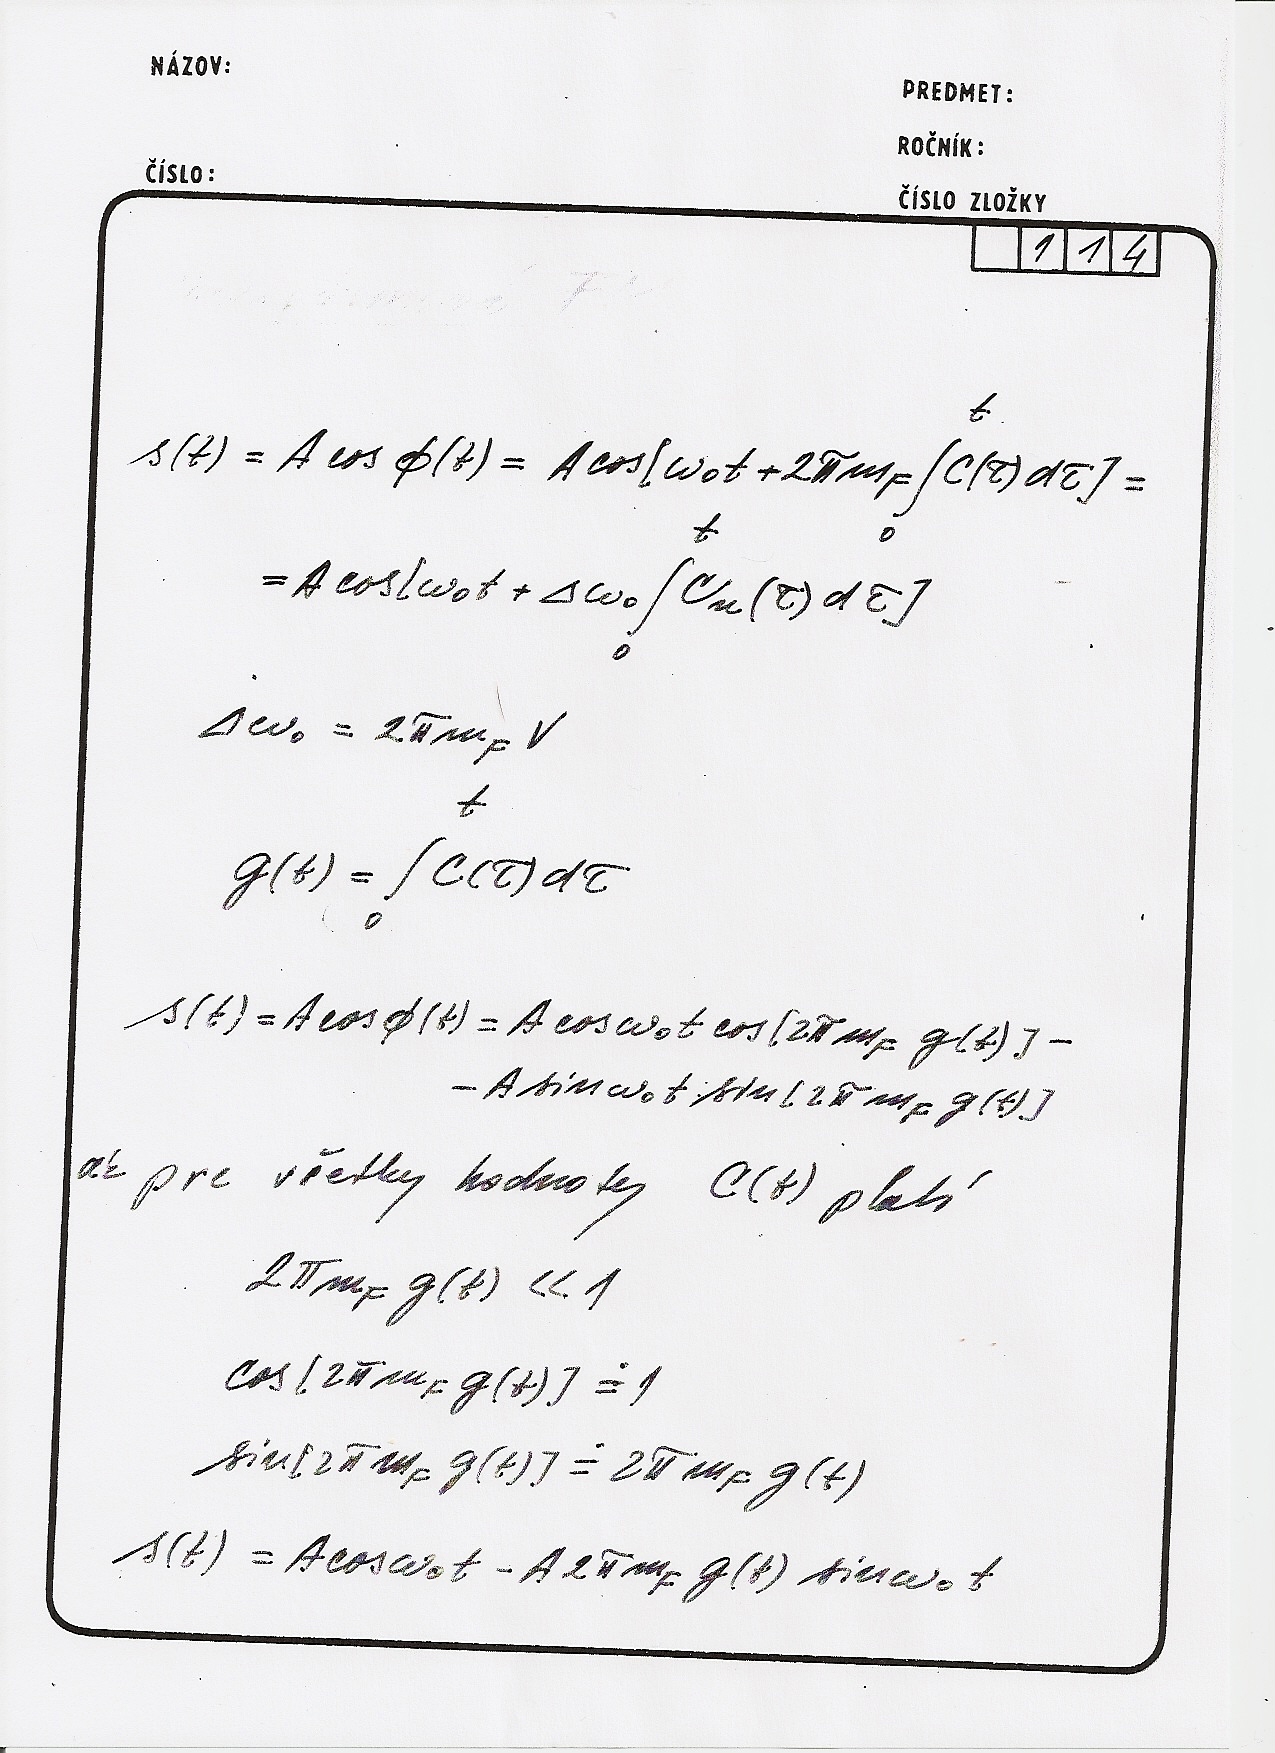 NÁZOV:
PREDMET:
ROČNÍK:
ČÍSLO:
ČÍSLO ZLOŽKY
114
s(t) = A cos ϕ(t) = A cos[ω₀t + 2πm_F ∫₀ᵗ C(τ)dτ] =
= A cos[ω₀t + Δω₀ ∫₀ᵗ Cₙ(τ)dτ]
Δω₀ = 2πm_F V
g(t) = ∫₀ᵗ C(τ)dτ
s(t) = A cos ϕ(t) = A cos ω₀t cos[2πm_F g(t)] −
− A sin ω₀t · sin[2πm_F g(t)]
ak pre všetky hodnoty C(t) platí
2πm_F g(t) << 1
cos[2πm_F g(t)] ≐ 1
sin[2πm_F g(t)] ≐ 2πm_F g(t)
s(t) = A cos ω₀t − A2πm_F g(t) sin ω₀t